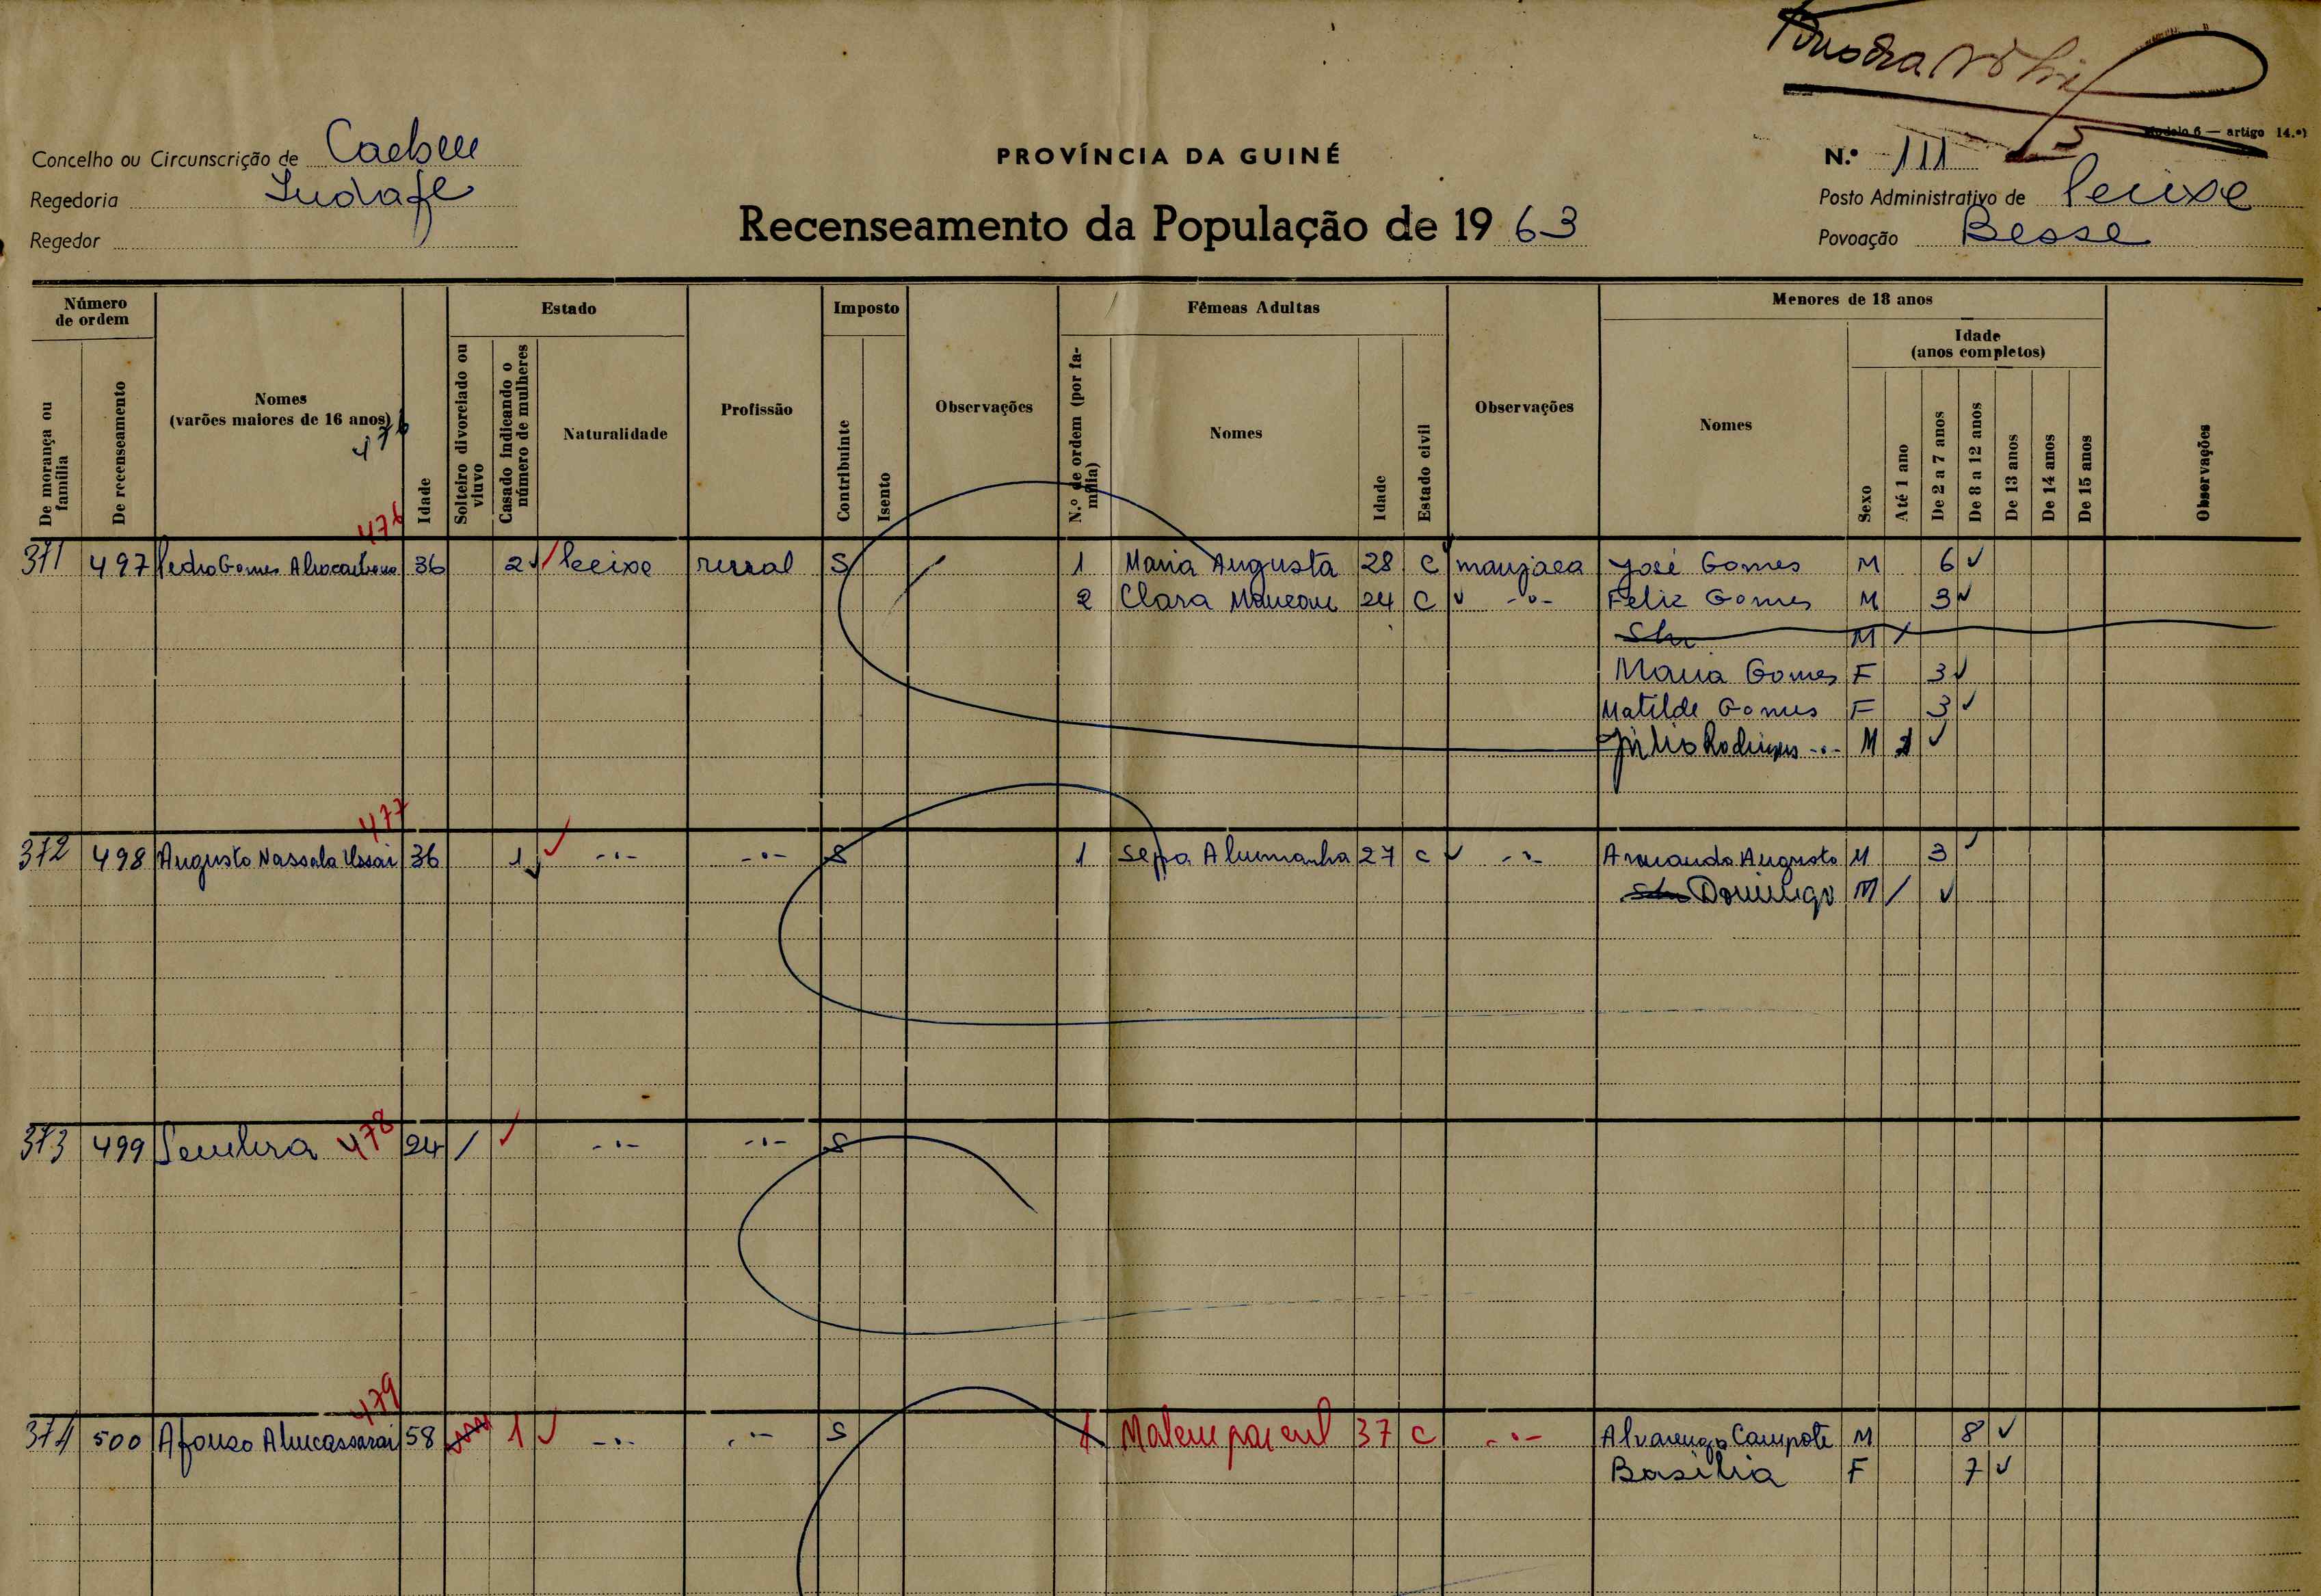 Modelo 6 — artigo 14.º)
Concelho ou Circunscrição de
PROVÍNCIA DA GUINÉ
N.º 111
Regedoria
Recenseamento da População de 19 63
Posto Administrativo de
Regedor
Povoação Besse
Número de ordem
Estado
Imposto
Fêmeas Adultas
Menores de 18 anos
Idade
(anos completos)
De morança ou família
De recenseamento
Nomes
(varões maiores de 16 anos)
476
Idade
Solteiro divorciado ou viuvo
Casado indicando o número de mulheres
Naturalidade
Profissão
Contribuinte
Isento
Observações
N.º de ordem (por família)
Nomes
Idade
Estado civil
Observações
Nomes
Sexo
Até 1 ano
De 2 a 7 anos
De 8 a 12 anos
De 13 anos
De 14 anos
De 15 anos
Observações
476
371 497 Pedro Gomes 36 2 rural S 1 Maria Augusta 28 C manjaca José Gomes M 6
2 Clara 24 C Feliz Gomes M 3
M
Maria Gomes F 3
Matilde Gomes F 3
Júlio Rodrigues M
477
372 498 Augusto Nassala 36 1 S 1 27 C Armando Augusto M 3
Domingo M
478
373 499 24 S
479
374 500 Afonso 58 1 S 1 37 C M 8
Basilia F 7